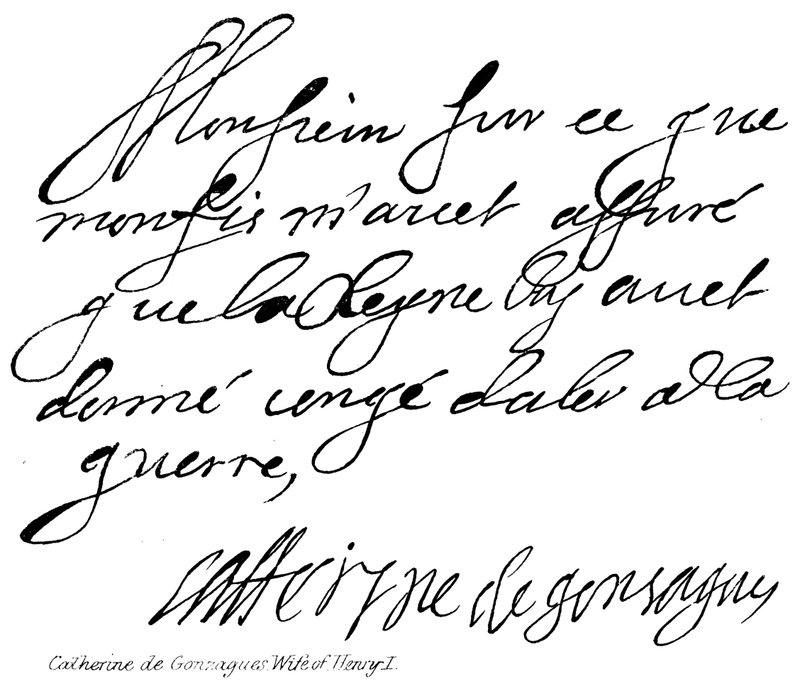 Monsieur sur ce que
mon fis m'avet assuré
que la Reyne luy avet
donné congé daler a la
guerre,
catterine de gonsagues
Catherine de Gonzagues, Wife of Henry I.